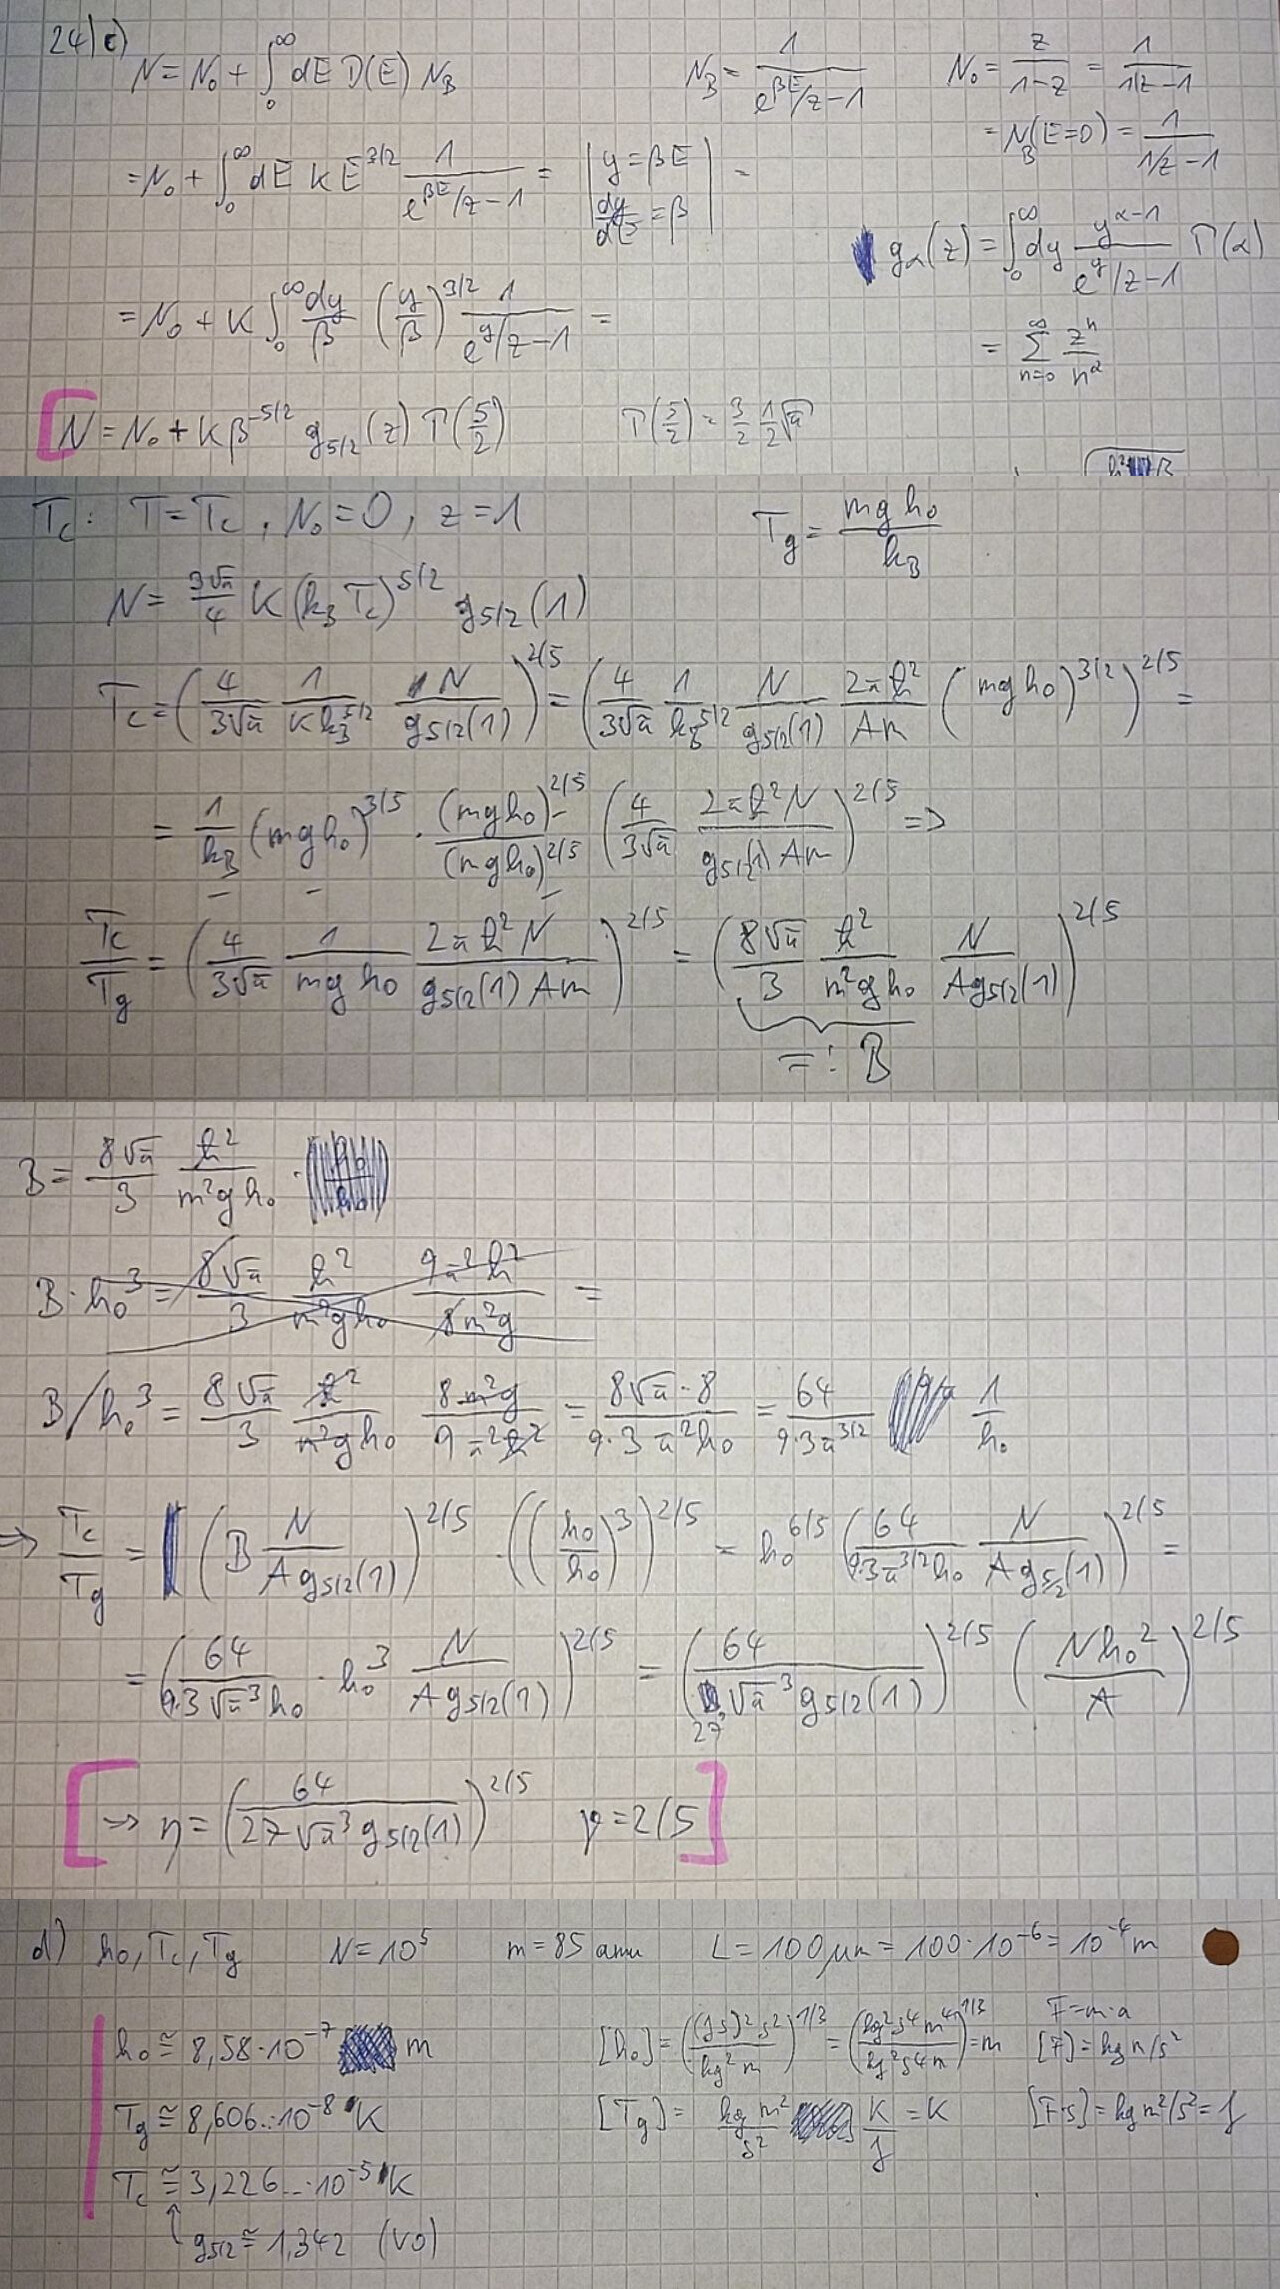 24) c)
N = N₀ + ∫₀^∞ dE D(E) N_B    N_B = 1/(e^{βE}/z − 1)    N₀ = z/(1−z) = 1/(1/z − 1)
= N_B(E=0) = 1/(1/z − 1)
= N₀ + ∫₀^∞ dE K E^{3/2} 1/(e^{βE}/z − 1) = | y = βE, dy/dE = β | =
g_α(z) = ∫₀^∞ dy y^{α−1}/(e^y/z − 1) Γ(α)
= N₀ + K ∫₀^∞ dy/β (y/β)^{3/2} 1/(e^y/z − 1) =
= Σ_{n=0}^∞ zⁿ/n^α
N = N₀ + K β^{−5/2} g_{5/2}(z) Γ(5/2)    Γ(5/2) = 3/2 1/2 √π
T_c: T = T_c, N₀ = 0, z = 1    T_g = mgh₀/k_B
N = 3√π/4 K (k_B T_c)^{5/2} g_{5/2}(1)
T_c = (4/(3√π) 1/(K k_B^{5/2}) N/g_{5/2}(1))^{2/5} = (4/(3√π) 1/k_B^{5/2} N/g_{5/2}(1) 2πħ²/(Am) (mgh₀)^{3/2})^{2/5} =
= 1/k_B (mgh₀)^{3/5} · (mgh₀)^{2/5}/(mgh₀)^{2/5} (4/(3√π) 2πħ²N/(g_{5/2}(1) Am))^{2/5} =>
T_c/T_g = (4/(3√π) 1/(mgh₀) 2πħ²N/(g_{5/2}(1) Am))^{2/5} = (8√π/3 ħ²/(m²gh₀) N/(A g_{5/2}(1)))^{2/5}
=: B
B = 8√π/3 ħ²/(m²gh₀) ·
B · h₀³ = 8√π/3 ħ²/(m²gh₀) 9π²ħ²/(8m²g) =
B/h₀³ = 8√π/3 ħ²/(m²gh₀) 8m²g/(9π²ħ²) = 8√π·8/(9·3π²h₀) = 64/(9·3π^{3/2}) 1/h₀
⇒ T_c/T_g = (B N/(A g_{5/2}(1)))^{2/5} · ((h₀/h₀)³)^{2/5} = h₀^{6/5} (64/(9·3π^{3/2}h₀) N/(A g_{5/2}(1)))^{2/5} =
= (64/(9·3√π³h₀) · h₀³ N/(A g_{5/2}(1)))^{2/5} = (64/(27√π³ g_{5/2}(1)))^{2/5} (Nh₀²/A)^{2/5}
→ η = (64/(27√π³ g_{5/2}(1)))^{2/5}    γ = 2/5
d) h₀, T_c, T_g    N = 10⁵    m = 85 amu    L = 100 µm = 100·10⁻⁶ = 10⁻⁴ m
h₀ ≅ 8,58·10⁻⁷ m    [h₀] = ((Js)² s²/(kg² m))^{1/3} = (kg² s⁴ m⁴/(kg² s⁴ m))^{1/3} = m    F = m·a
[F] = kg m/s²
T_g ≅ 8,606..·10⁻⁸ K    [T_g] = kg m²/s² K/J = K    [F·s] = kg m²/s² = J
T_c ≅ 3,226...·10⁻⁵ K
↑ g_{5/2} ≅ 1,342 (VO)